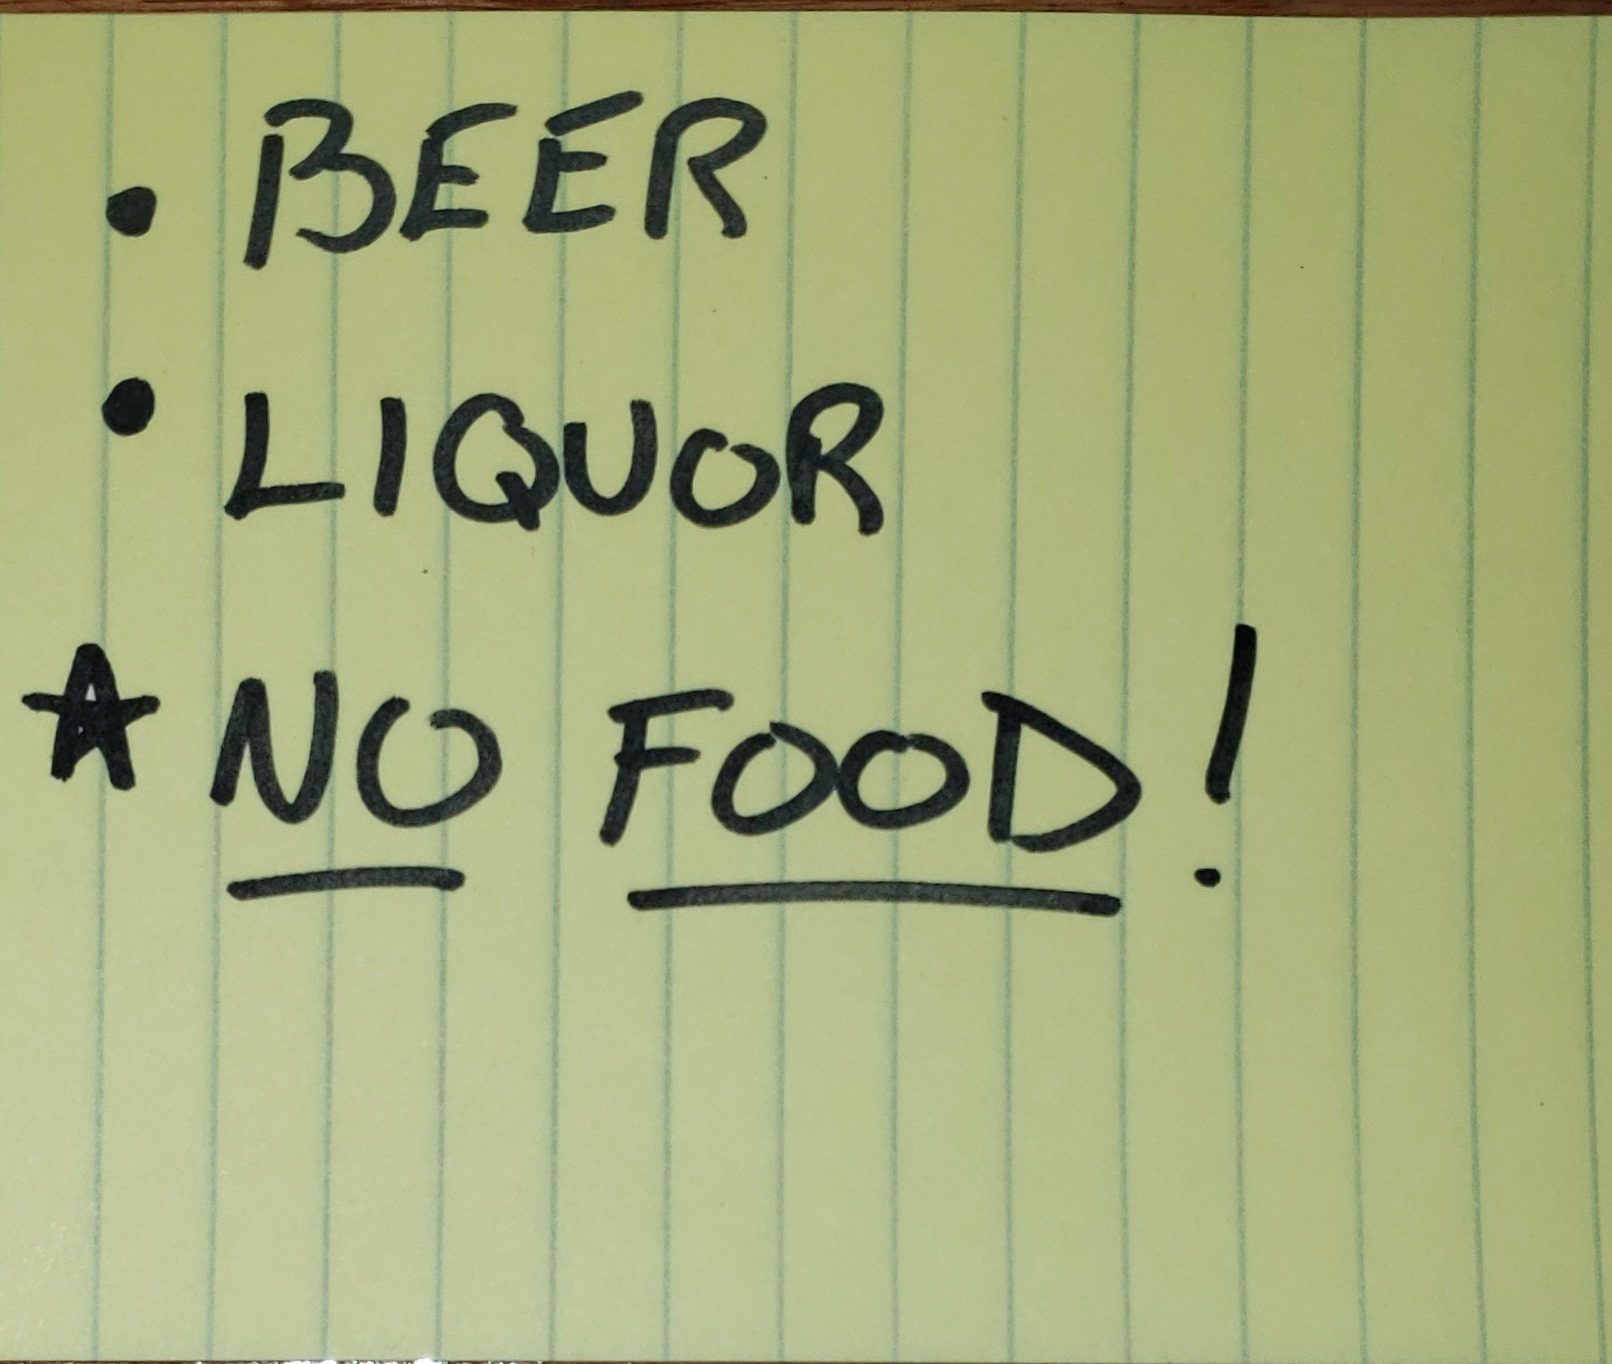 • BEER
• LIQUOR
☆ NO FOOD!